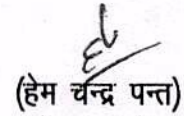 (हेम चन्द्र पन्त)